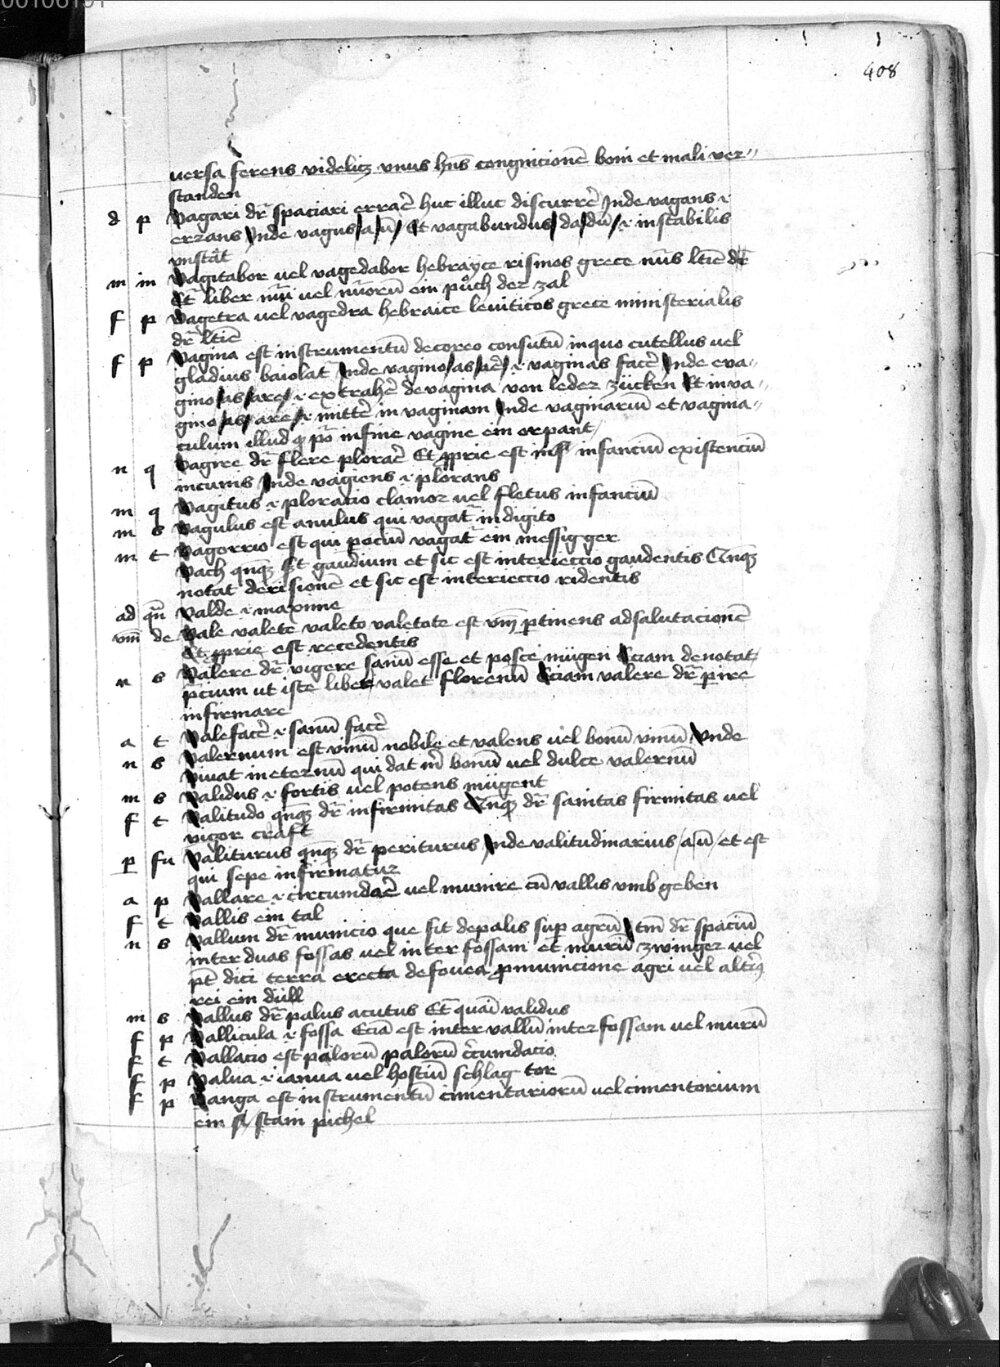 00106191
408
versa ferens videlicz vnus hn̄s congnicionē boni et mali ver=
standen
d p Vagari dr̄ spaciari errar̄e huc illuc discurrēr Inde vagans ⁊
errans Inde vagus/a/ū/ Et vagabundus/da/dū/ ⁊ instabilis
vnstāt
m in Vagitabor vel vagedabor hebrayce rismos grece nūs ltīe dr̄
Et̄ liber nūi vel nūorū ein půch der zal
f p Vagetra vel vagedra hebraice leuiticos grece ministerialis
dr̄ ltīe
f p Vagina est instrumentū de coreo consutū in quo cutellus vel
gladius baiolat̄ Inde vagino/as/re/ ⁊ vaginas facēr Inde eva=
gino/as/are/ ⁊ extrahēr de vagina von leder zücken Et inva=
gino/as/are/ ⁊ mittēr in vaginam Inde vaginariū et vagina=
culum illud qd pō in fine vagine ein orpant/
n q Vagire dr̄ flere plorar̄e Et pprie est infantiū existenciū
in cunis Inde vagiens ⁊ plorans
m q Vagitus ⁊ ploratio clamor vel fletus infanciū
m s Vagulus est anulus qui vagat̄ in digito
m t Vagorrio est qui pociū vagat̄ ein messigger
Vach qnqz Et gaudium et sic est interieccio gaudentis Qnqz
notat derisionē et sic est interieccio ridentis
ad qn̄ Valde ⁊ maxime
vm̄ de Vale valete valeto valetote est vm̄ ptinens ad salutacionē
Et pprie est recedentis
n s Valere dr̄ vigere sanū esse et posse mügen Eciam denotat
pcium ut iste liber valet florenū Eciam valere dr̄ pire
infirmare
a t Valefacēr ⁊ sanū facēr
n s Valernum est vinū nobile et valens vel bonū vinū Vnde
vivat in eternū qui dat m̄ bonū vel dulce valernū
m s Validus ⁊ fortis vel potens mügent
f t Valitudo qnqz dr̄ infirmitas Qnqz dr̄ sanitas firmitas vel
vigor craft
p fu Valiturus qnqz dr̄ periturus Inde valitudinarius/a/ū/ et est
qui sepe infirmatur
a p Vallare ⁊ circumdar̄e vel munire cū vallis vmb geben
f t Vallis ein tal
n s Vallum dr̄ municio que fit de palis sup agerū Itm̄ dr̄ spaciū
inter duas fossas vel inter fossam et murū zwinger vel
pt̄ dici terra erecta de fovea p municione agri vel altīus
rei ein düll
m s Vallus dr̄ palus acutus Et quasi validus
f p Vallicula ⁊ fossa Eciā est inter vallū inter fossam vel murū
f t Vallacio est palorū palorū cīrcumdacio
f p Valua ⁊ ianua vel hostiū schlag tor
f p Vanga est instrumentū cimentariorū vel cimentorium
ein stain pichel